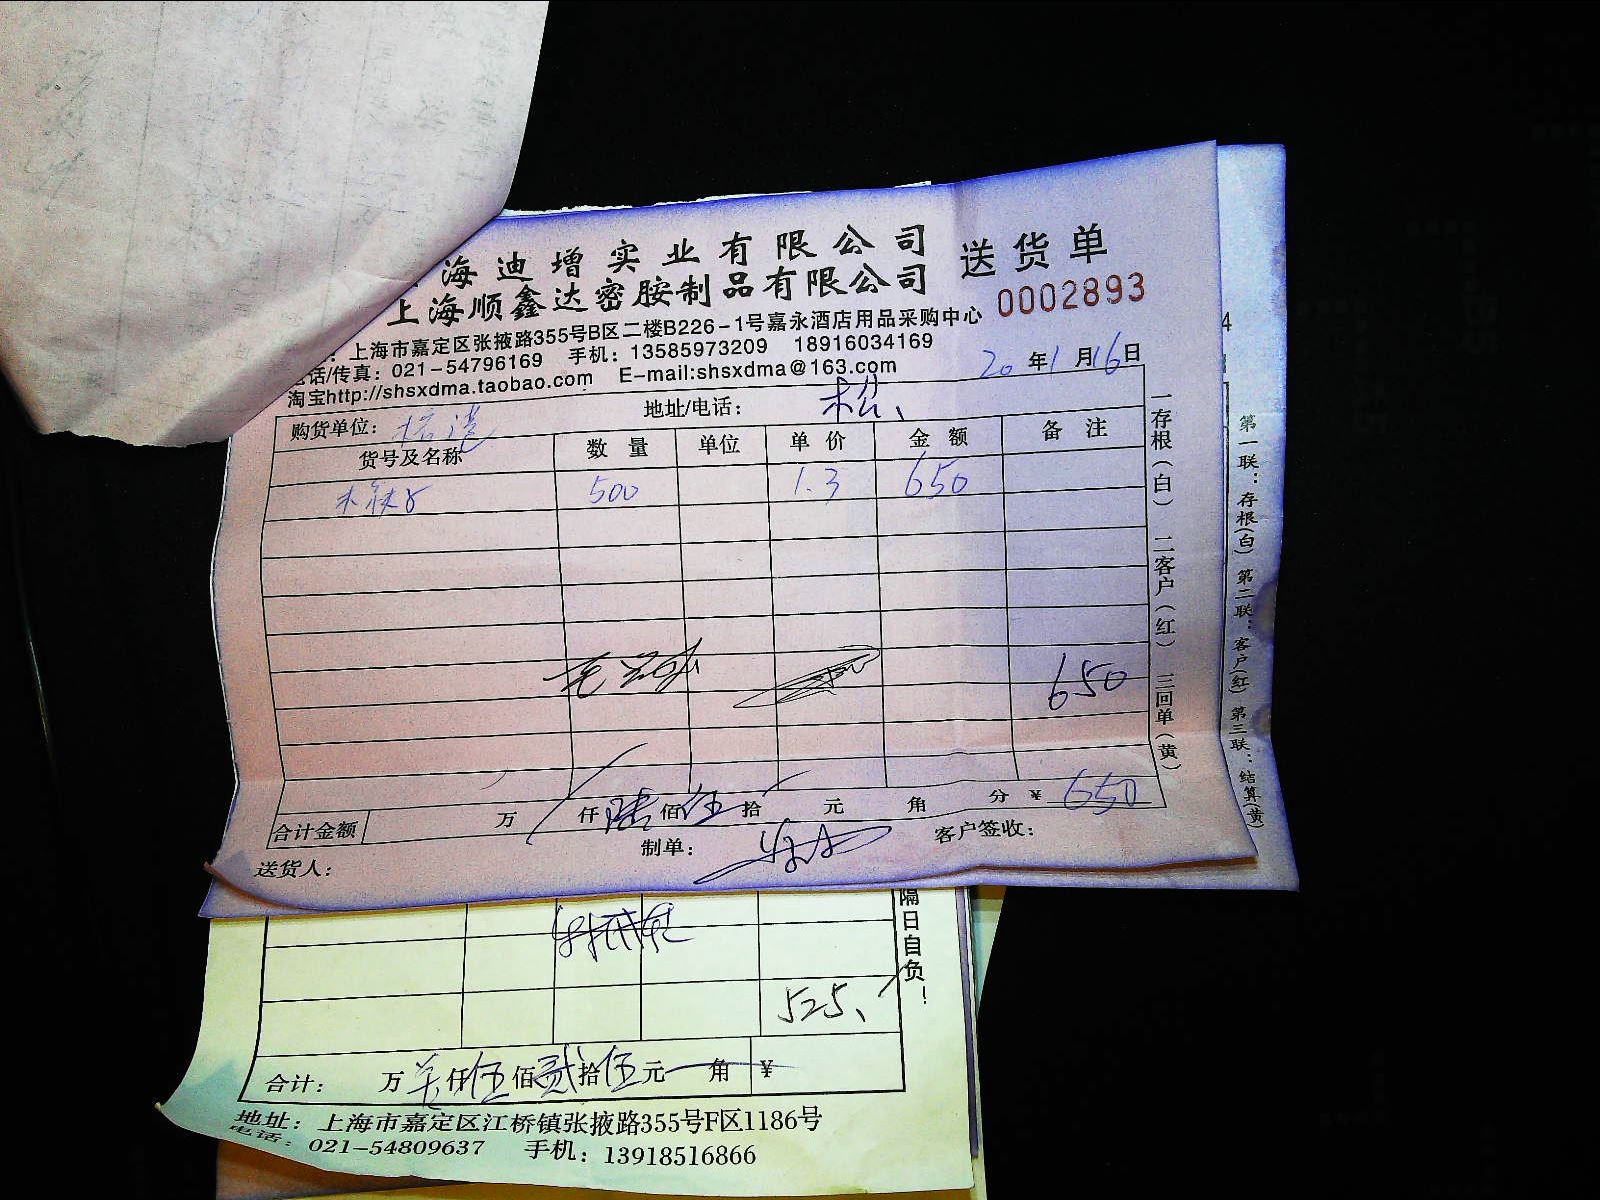 海迪增实业有限公司
上海顺鑫达密胺制品有限公司 送货单
0002893
：上海市嘉定区张掖路355号B区二楼B226-1号嘉永酒店用品采购中心
电话/传真：021-54796169 手机：13585973209 18916034169
淘宝http://shsxdma.taobao.com E-mail:shsxdma@163.com
20 年 1 月 16 日
购货单位： 地址/电话：
货号及名称 数量 单位 单价 金额 备注
500 1.3 650
650
合计金额 万 仟 陆 佰 伍 拾 元 角 分 ¥ 650
送货人： 制单： 客户签收：
一存根（白） 二客户（红） 三回单（黄）
第一联：存根(白) 第二联：客户(红) 第三联：结算(黄)
隔日自负！
525
合计： 万 仟 伍 佰 贰 拾 伍 元 角 ¥
地址：上海市嘉定区江桥镇张掖路355号F区1186号
电话：021-54809637 手机：13918516866